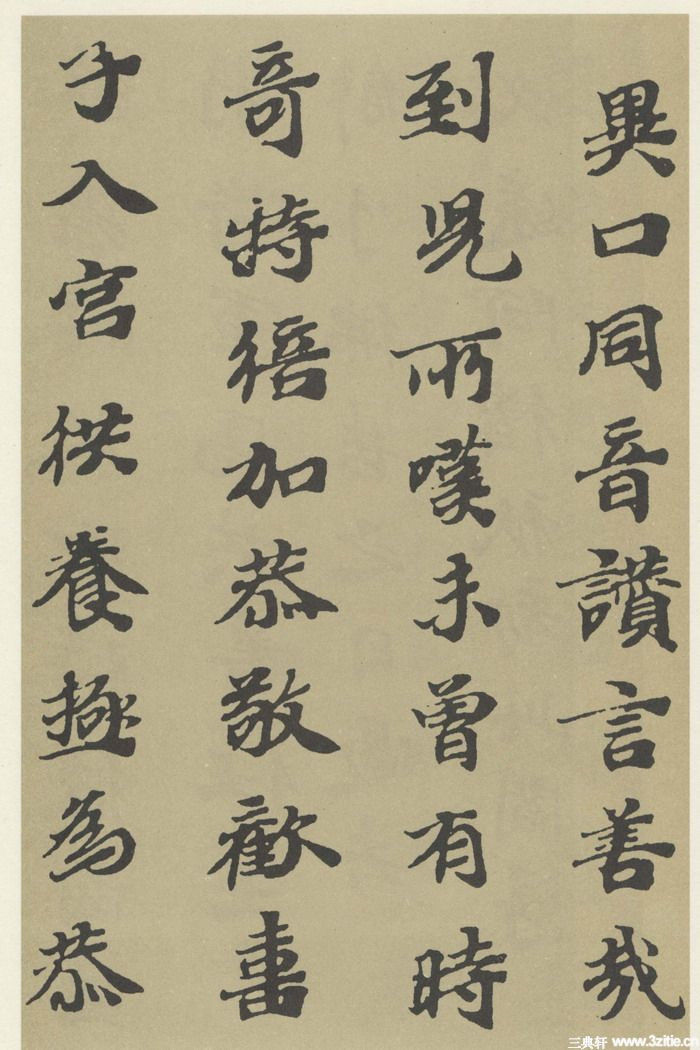 異口同音讚言善哉
到見所嘆未曾有時
竒特倍加恭敬歡喜
子入宮供養極為恭
三典轩 www.3zitie.cn